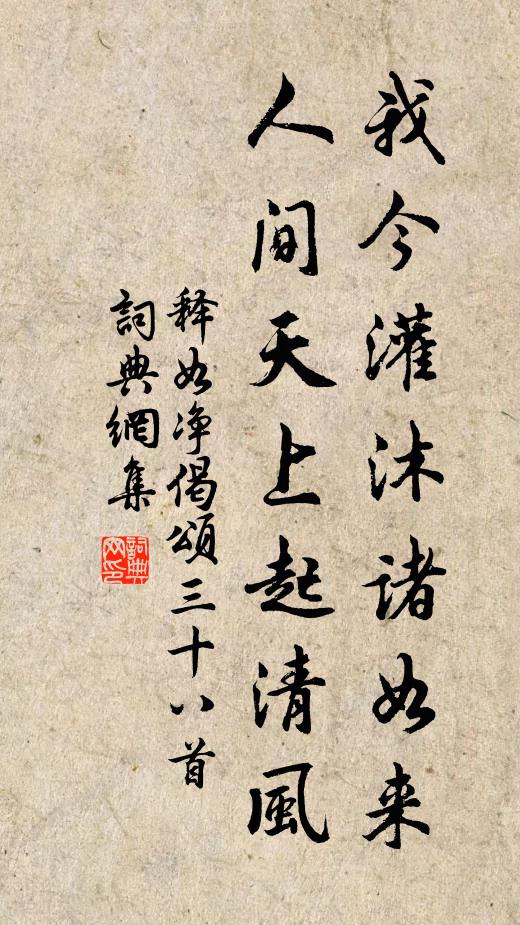 我今灌沐诸如来
人间天上起清風
释如净偈頌三十八首
詞典網集
詞典网印